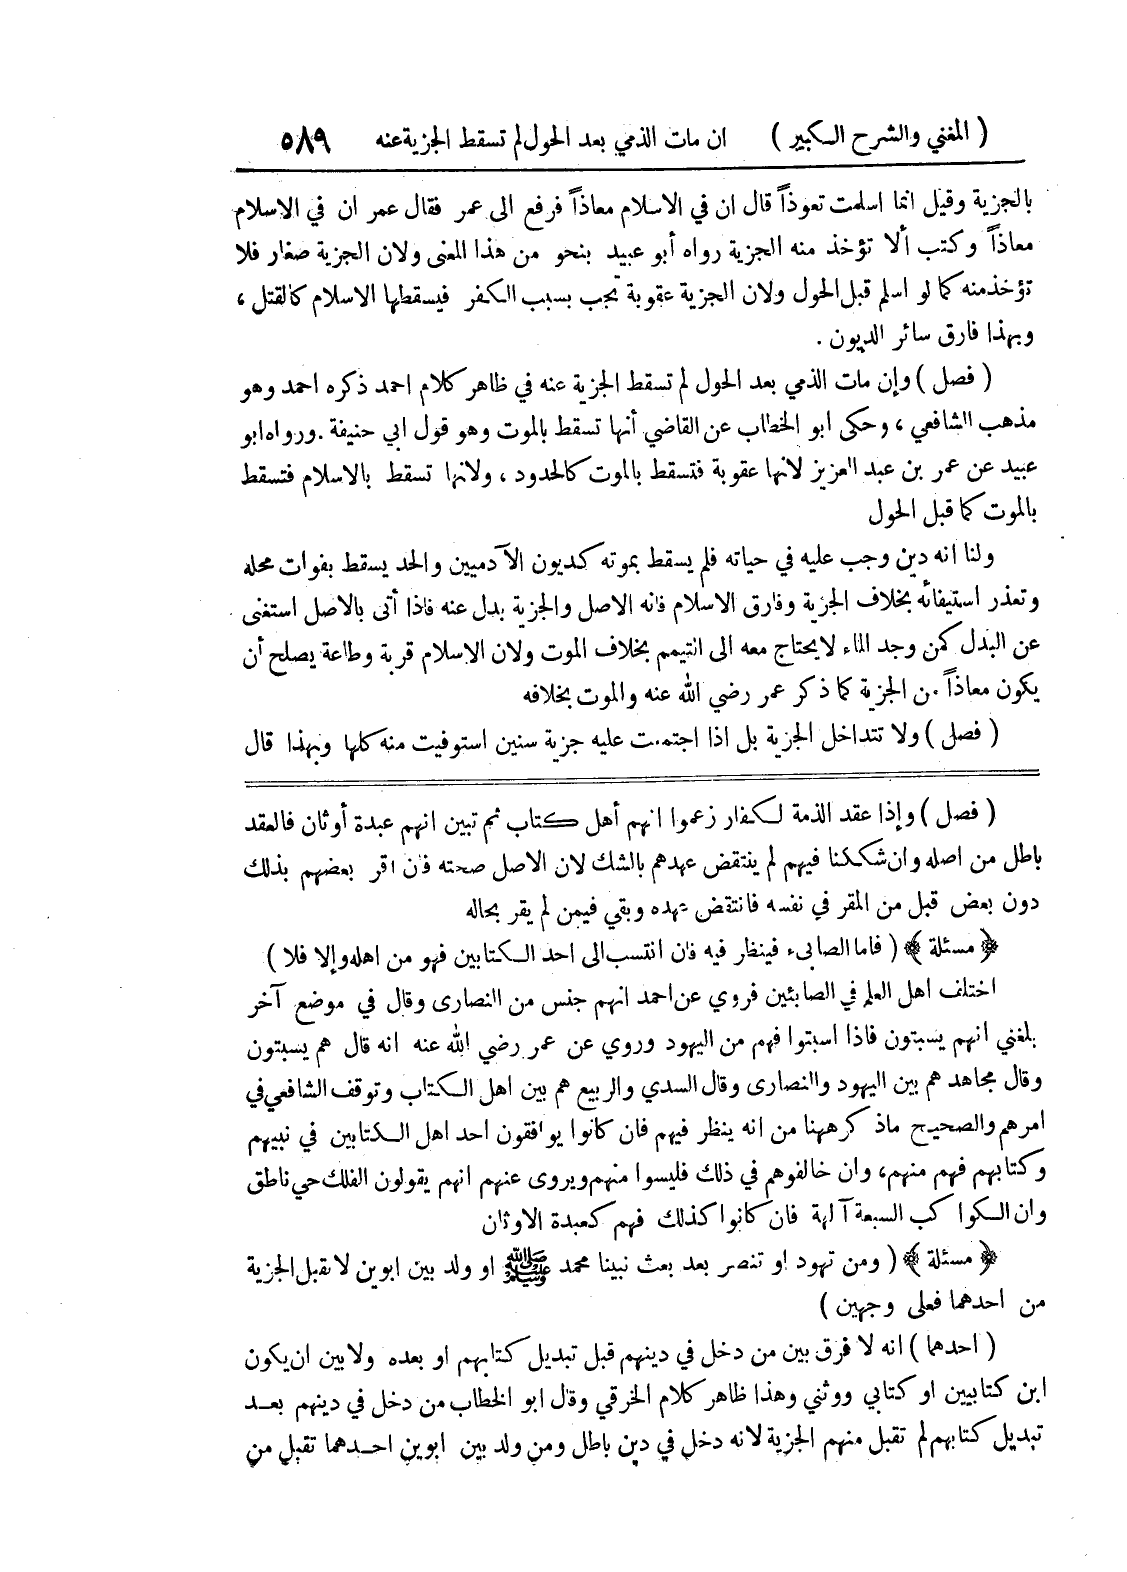 ( المغني والشرح الكبير ) ان مات الذمي بعد الحول لم تسقط الجزية عنه ٥٨٩
بالجزية وقيل انما اسلمت تعوذاً قال ان في الاسلام معاذاً فرفع الى عمر فقال عمر ان في الاسلام
معاذاً وكتب ألا تؤخذ منه الجزية رواه أبو عبيد بنحو من هذا المعنى ولان الجزية صغار فلا
تؤخذ منه كما لو اسلم قبل الحول ولان الجزية عقوبة تجب بسبب الكفر فيسقطها الاسلام كالقتل ،
وبهذا فارق سائر الديون .
( فصل ) وإن مات الذمي بعد الحول لم تسقط الجزية عنه في ظاهر كلام احمد ذكره احمد وهو
مذهب الشافعي ، وحكى ابو الخطاب عن القاضي أنها تسقط بالموت وهو قول ابي حنيفة . ورواه ابو
عبيد عن عمر بن عبد العزيز لانها عقوبة فتسقط بالموت كالحدود ، ولانها تسقط بالاسلام فتسقط
بالموت كما قبل الحول
ولنا انه دين وجب عليه في حياته فلم يسقط بموته كديون الآدميين والحد يسقط بفوات محله
وتعذر استيفائه بخلاف الجزية وفارق الاسلام فانه الاصل والجزية بدل عنه فاذا أتى بالاصل استغنى
عن البدل كمن وجد الماء لا يحتاج معه الى التيمم بخلاف الموت ولان الاسلام قربة وطاعة يصلح أن
يكون معاذاً من الجزية كما ذكر عمر رضي الله عنه والموت بخلافه
( فصل ) ولا تتداخل الجزية بل اذا اجتمعت عليه جزية سنين استوفيت منه كلها وبهذا قال
( فصل ) وإذا عقد الذمة لكفار زعموا انهم أهل كتاب ثم تبين انهم عبدة أوثان فالعقد
باطل من اصله وان شككنا فيهم لم ينتقض عهدهم بالشك لان الاصل صحته فان اقر بعضهم بذلك
دون بعض قبل من المقر في نفسه فانتقض عهده وبقي فيمن لم يقر بحاله
﴿ مسئلة ﴾ ( فاما الصابىء فينظر فيه فان انتسب الى احد الكتابين فهو من اهله وإلا فلا )
اختلف اهل العلم في الصابئين فروي عن احمد انهم جنس من النصارى وقال في موضع آخر
بلغني انهم يسبتون فاذا اسبتوا فهم من اليهود وروي عن عمر رضي الله عنه انه قال هم يسبتون
وقال مجاهد هم بين اليهود والنصارى وقال السدي والربيع هم بين اهل الكتاب وتوقف الشافعي في
امرهم والصحيح ماذكرههنا من انه ينظر فيهم فان كانوا يوافقون احد اهل الكتابين في نبيهم
وكتابهم فهم منهم، وان خالفوهم في ذلك فليسوا منهم ويروى عنهم انهم يقولون الفلك حي ناطق
وان الكواكب السبعة آلهة فان كانوا كذلك فهم كعبدة الاوثان
﴿ مسئلة ﴾ ( ومن تهود او تنصر بعد بعث نبينا محمد ﷺ او ولد بين ابوين لا تقبل الجزية
من احدهما فعلى وجهين )
( احدهما ) انه لا فرق بين من دخل في دينهم قبل تبديل كتابهم او بعده ولا بين ان يكون
ابن كتابيين او كتابي ووثني وهذا ظاهر كلام الخرقي وقال ابو الخطاب من دخل في دينهم بعد
تبديل كتابهم لم تقبل منهم الجزية لانه دخل في دين باطل ومن ولد بين ابوين احدهما تقبل من